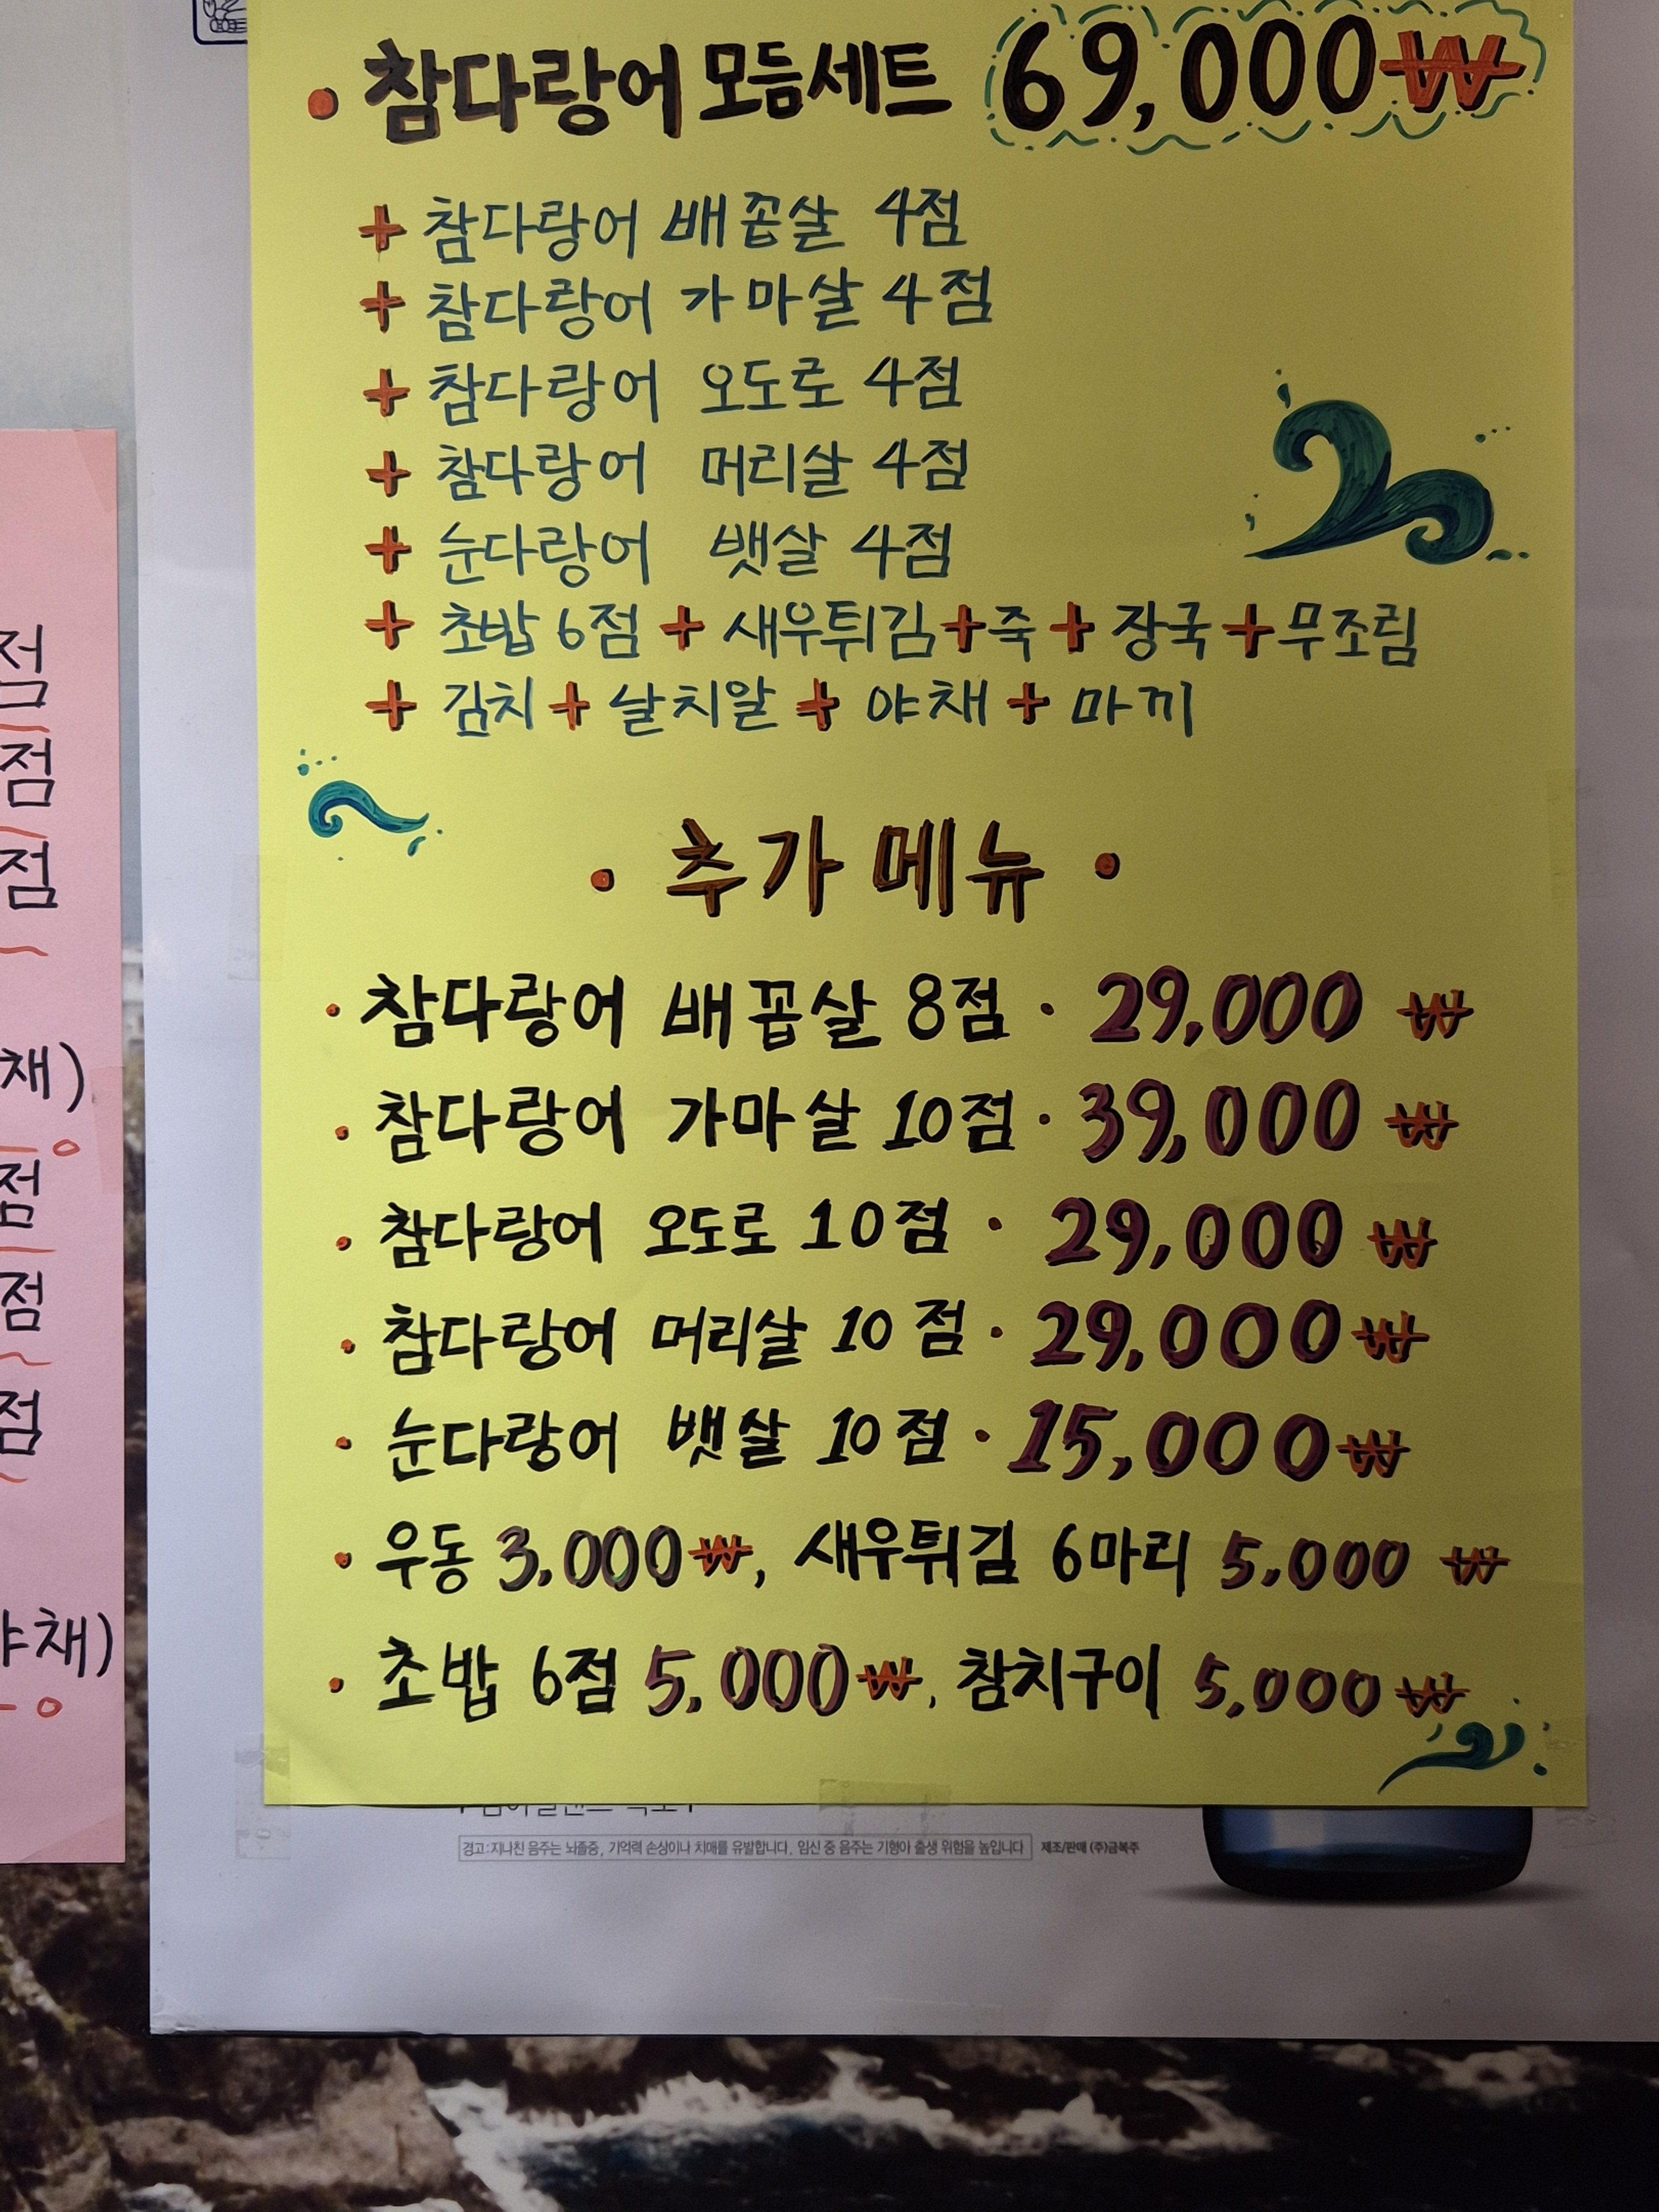 • 참다랑어 모듬세트 69,000₩
+ 참다랑어 배꼽살 4점
+ 참다랑어 가마살 4점
+ 참다랑어 오도로 4점
+ 참다랑어 머리살 4점
+ 눈다랑어 뱃살 4점
+ 초밥 6점 + 새우튀김 + 죽 + 장국 + 무조림
+ 김치 + 날치알 + 야채 + 마끼
• 추가 메뉴 •
• 참다랑어 배꼽살 8점 • 29,000 ₩
• 참다랑어 가마살 10점 • 39,000 ₩
• 참다랑어 오도로 10점 • 29,000 ₩
• 참다랑어 머리살 10점 • 29,000 ₩
• 눈다랑어 뱃살 10점 • 15,000 ₩
• 우동 3,000₩, 새우튀김 6마리 5,000 ₩
• 초밥 6점 5,000₩, 참치구이 5,000 ₩
경고:지나친 음주는 뇌졸중, 기억력 손상이나 치매를 유발합니다. 임신 중 음주는 기형아 출생 위험을 높입니다 제조/판매 (주)금복주
점
점
점
채)
점
점
점
야채)